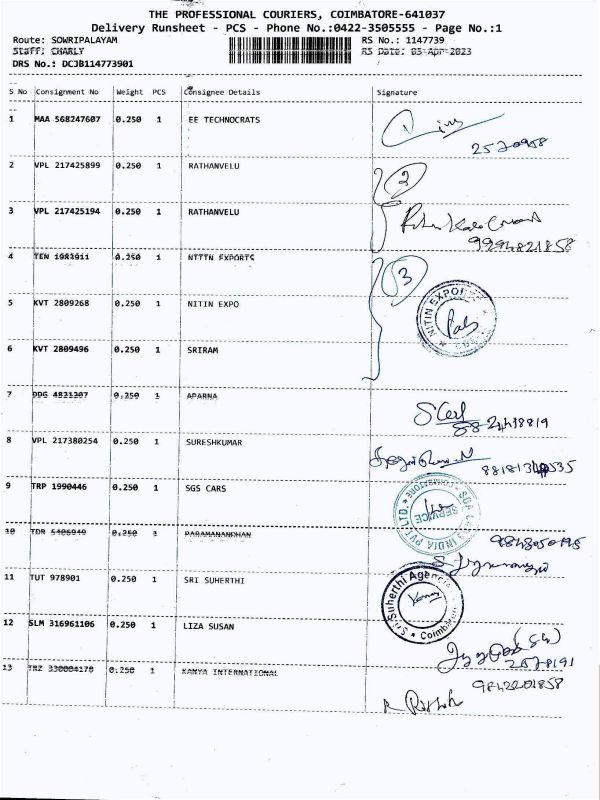 THE PROFESSIONAL COURIERS, COIMBATORE-641037
Delivery Runsheet - PCS - Phone No.:0422-3505555 - Page No.:1
Route: SOWRIPALAYAM RS No.: 1147739
Staff: CHARLY RS Date: 05-Apr-2023
DRS No.: DCJB114773901
S No Consignment No Weight PCS Consignee Details Signature
1 MAA 568247607 0.250 1 EE TECHNOCRATS
2570958
2 VPL 217425899 0.250 1 RATHANVELU 2
3 VPL 217425194 0.250 1 RATHANVELU
9994821858
4 TEN 1983911 0.250 NITIN EXPORTS 3
5 KVT 2809268 0.250 1 NITIN EXPO NITIN EXPOR
6 KVT 2809496 0.250 1 SRIRAM
7 DDG 4821207 0.250 1 APARNA
8 VPL 217380254 0.250 1 SURESHKUMAR
9 TRP 1990446 0.250 1 SGS CARS INDIA PVT LTD. COIMBATORE SERVICE
10 TDR 0.250 1 PARAMANANDHAN
11 TUT 978901 0.250 1 SRI SUHERTHI Sri Suherthi Agenci Coimbat
12 SLM 316961106 0.250 1 LIZA SUSAN
2578191
13 TRZ 330004170 0.250 1 KANYA INTERNATIONAL
9842201858